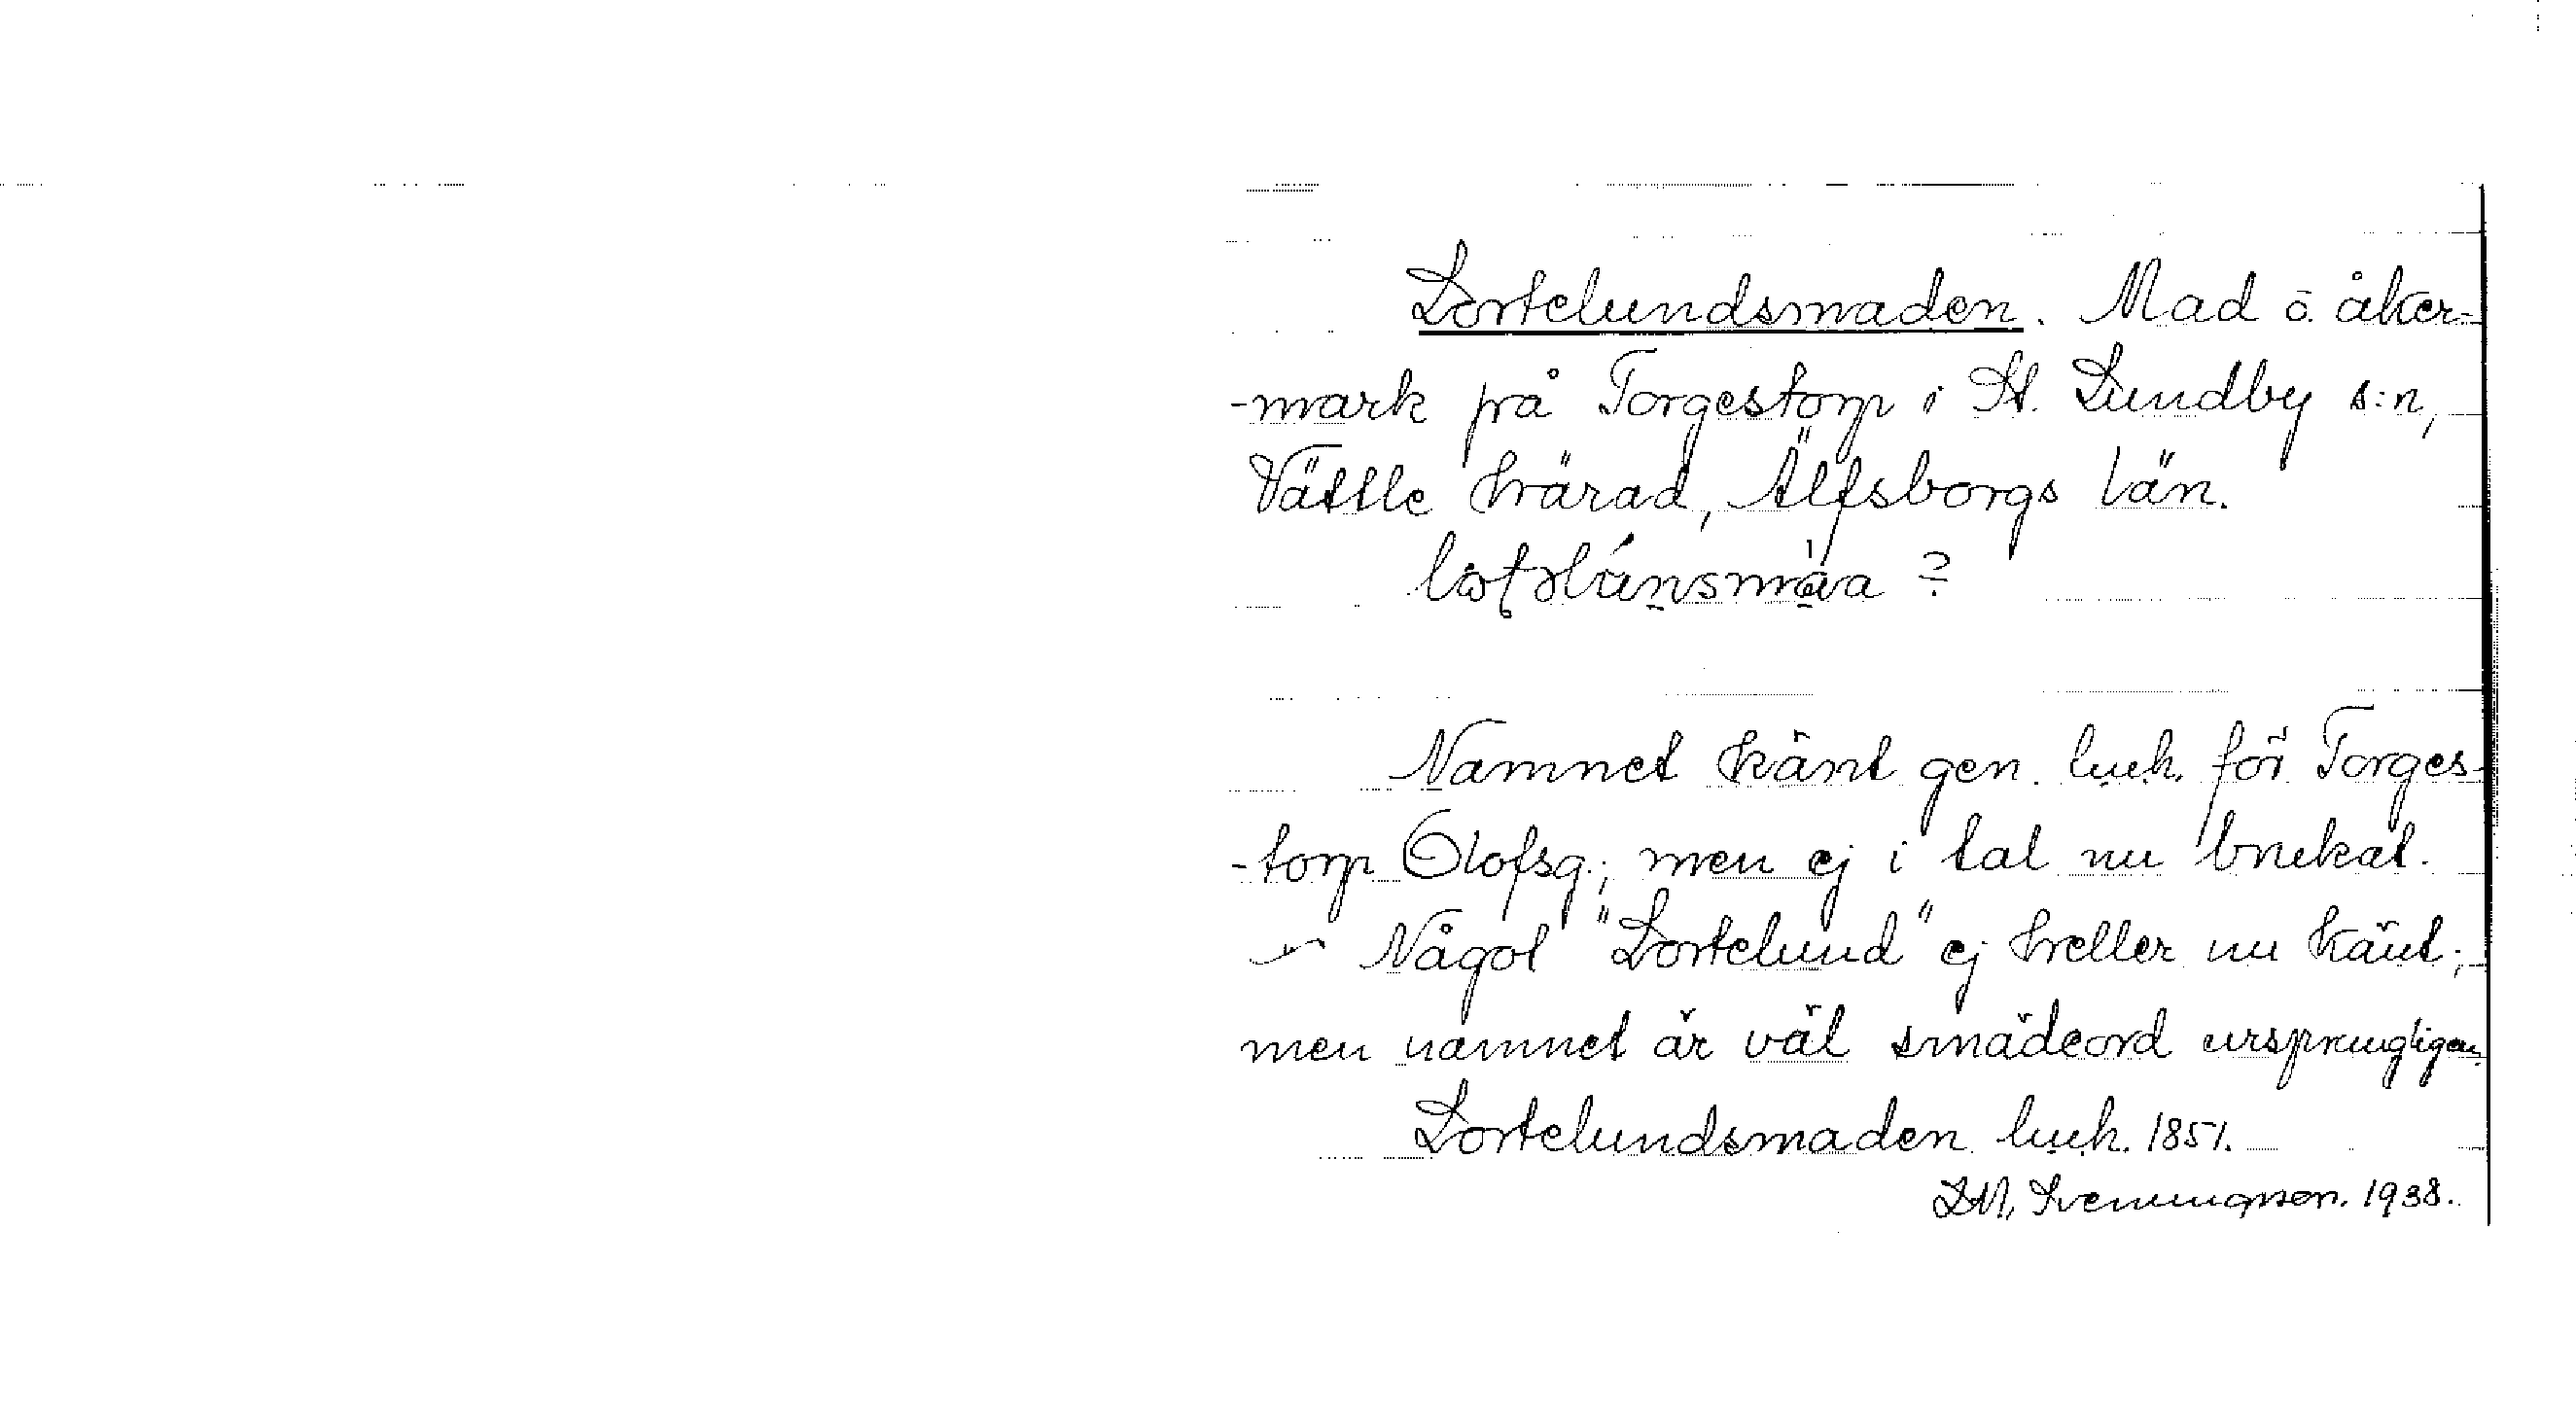 Lortelundsmaden. Mad o. åker-
-mark på Torgestorp i St. Lundby s:n,
Vättle härad, Älfsborgs län.
Namnet känt gen. luch. för Torges-
-torp Olofsg.; men ej i tal nu brukat.
Något "Lortelund" ej heller nu känt;
men namnet är väl smädeord ursprungligen.
Lortelundsmaden luch. 1851.
1938.